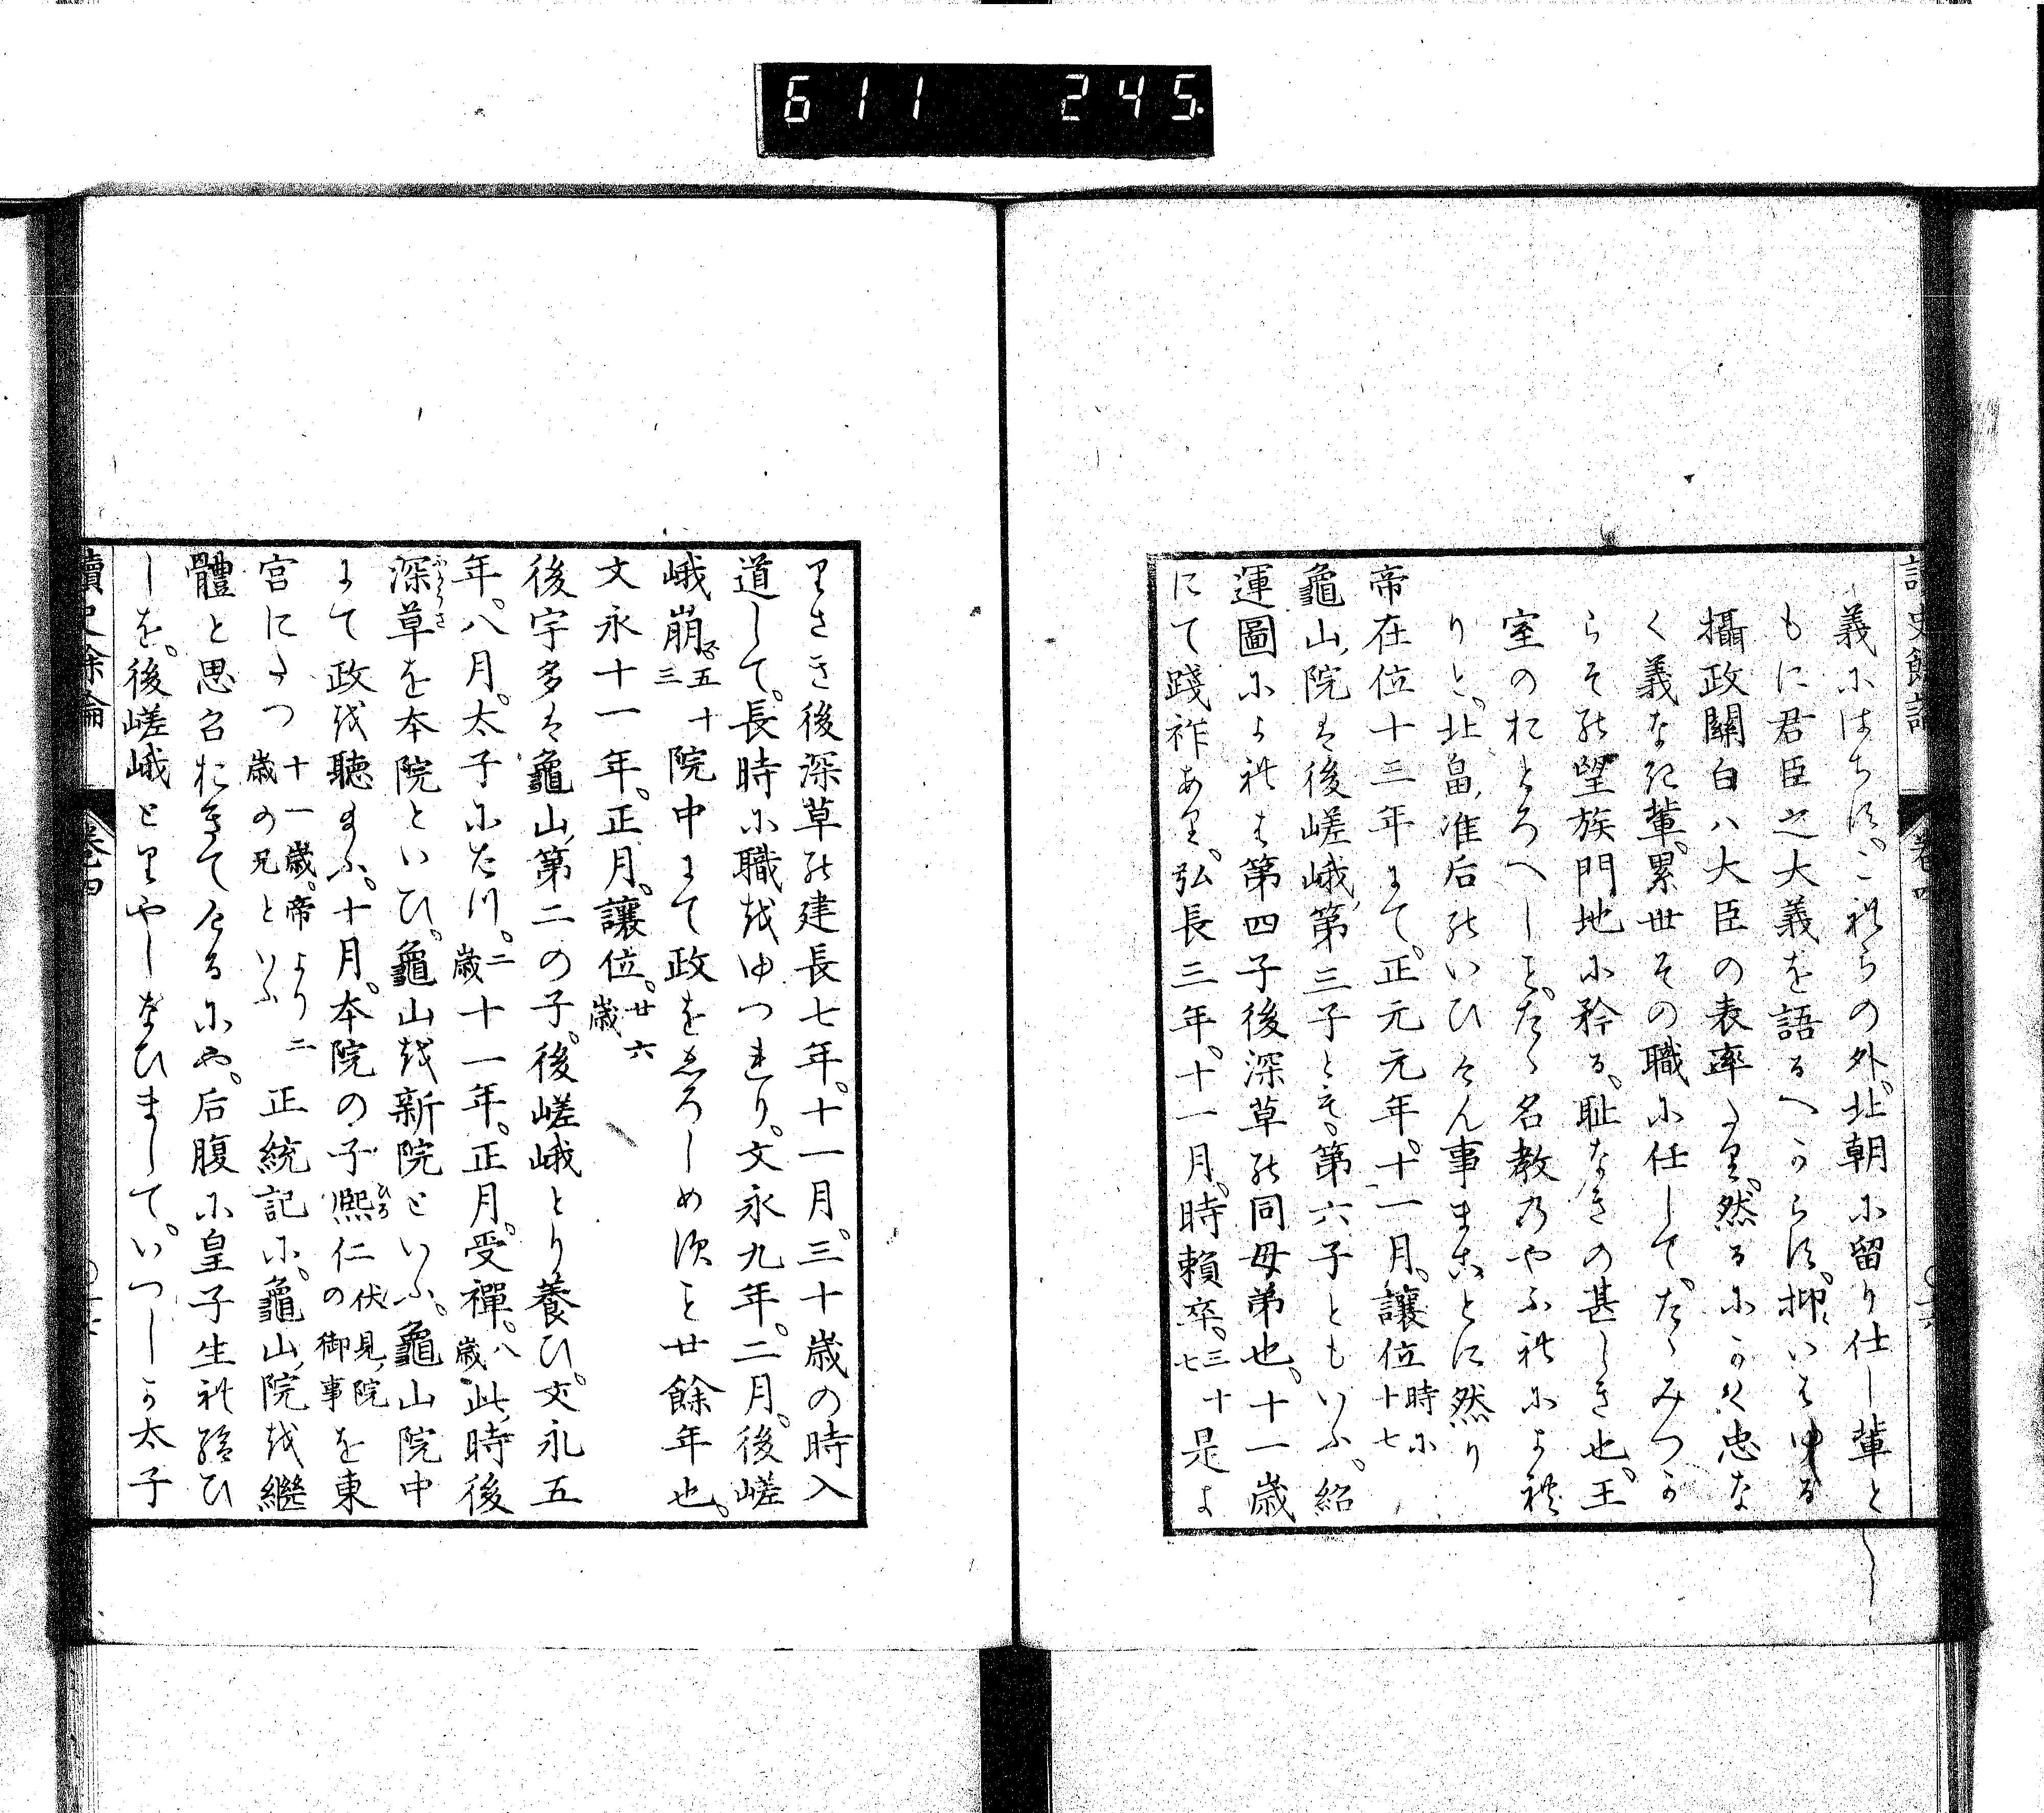 611 245
讀史餘論 卷四
義にはちす。これらの外。北朝に留り仕し輩と
もに君臣之大義を語るへからす。抑いはゆる
攝政關白ハ大臣の表率たり。然るにかく忠な
く義なき輩。累世その職に任して。たゝみつか
らその望族門地に矜る。耻なきの甚しき也。王
室のおとろへしも。たゝ名教のやふれによれ
りと。北畠准后のいひけん事まことに然り
帝在位十三年にて。正元元年。十一月。讓位時に十七
龜山院は後嵯峨第三子とも。第六子ともいふ。紹
運圖によれは第四子後深草の同母弟也。十一歳
にて踐祚あり。弘長三年。十一月。時賴卒。三十七是よ
りさき後深草の建長七年。十一月。三十歳の時入
道して。長時に職をゆつれり。文永九年。二月。後嵯
峨崩ず五十三院中にて政をしろしめすこと廿餘年也。
文永十一年。正月。讓位。廿六歳
後宇多は龜山第二の子。後嵯峨とり養ひ。文永五
年。八月。太子にたつ。二歳十一年。正月。受禪。八歳此時後
深草を本院といひ。龜山を新院といふ。龜山院中
にて政を聽まふ。十月。本院の子熙仁伏見院の御事を東
宮にたつ十一歳。帝より二歳の兄といふ正統記に。龜山院を繼
體と思召おきてけるにや。后腹に皇子生れ給ひ
しを。後嵯峨とりやしなひまして。いつしか太子
讀史餘論 卷四